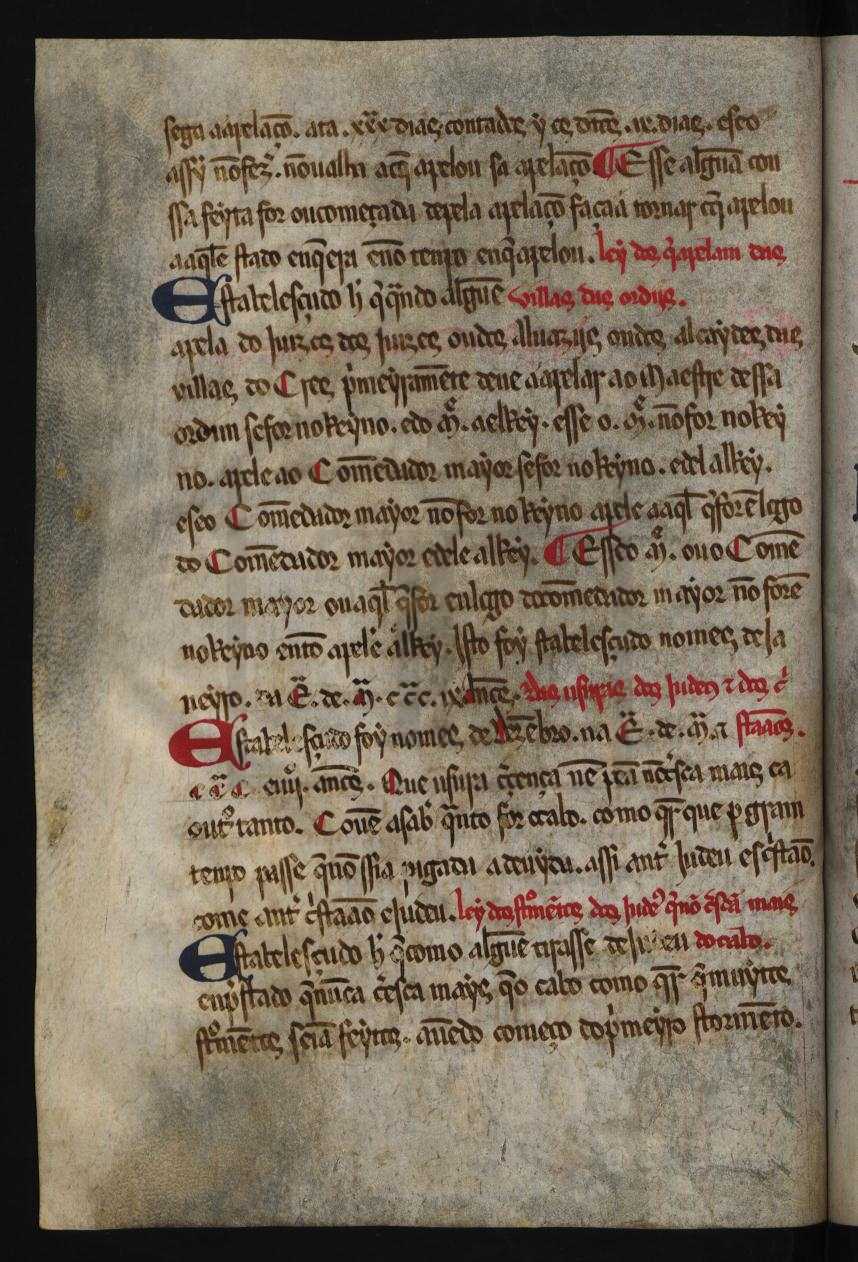 sega aapelaçõ. ata .xxx dias contados y os ditos .ix. dias. eseo
assy nõ fez̾. nõ ualha acq̃ apelou sa apelaçõ Esse algũa cou
ssa feyta for ou começada depola apelaçõ façãa tornar cq̃ apelou
aaqle stado enq̃ era eno tenpo enq̃ apelou. ley dos q̃ apelam das
Stabelesçudo h̃ q̃ q̃ndo alguẽ villas das ordijs.
apela do Juizes dos Juizes ou dos aluazijs ou dos alcaydes das
villas do Cres p̃meyramẽte deue aapelar ao Maestre dessa
ordim se for no Reyno. e do M̃. a elRey. esse o. M̃. nõ for no Rey
no. apele ao Comẽdador mayor se for no Reyno. e del alRey.
eseo Comẽdador mayor nõ for no Reyno apele aaql̃ q̃ for ẽ logo
do Comẽdador mayor e dele alRey. Esseo M̃. ou o Comẽ
dador mayor ou aql̃ q̃ for en logo do comẽdador mayor nõ forẽ
no Reyno entõ apele a elRey. Isto foy stabelesçudo no mes de Ja
neyro. na E. de. M̃. c c c. ix anos. Das usuras dos Judeus ⁊ dos c̃
Stabelesçudo foy no mes de Dezẽbro. na E. de. M̃. ⁊ stãaos.
c c c. anos. Que usura c̃ nẽ nẽ c̃sca mais ca
out̃ tanto. Couẽ a sab̃ q̃nto for o cabo. como q̃r que p gram
tenpo passe q̃ nõ ssia pagada a deuyda. assi ant̃ Judeu e c̃stãao,
come ant̃ c̃stãao e Judeu. ley dos st̃omẽtos dos Jude᷒ q̃ nõ c̃scã mais
Stabelesçudo h̃ q̃ como alguẽ tirasse de Judeu do cabo.
enp̃stado q̃ nũca c̃esca mays q̃o cabo como q̃r q̃ muytos
st̃omẽtos seiã feytos. auẽdo começo do p̃meyro stormẽto.